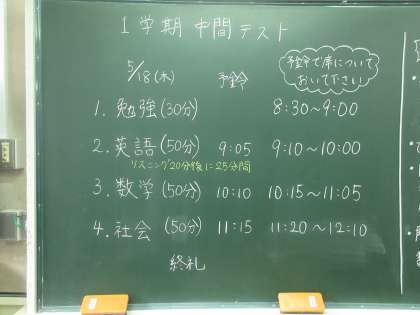 1学期 中間テスト
5/18(木) 予鈴 予鈴で席について
おいて下さい
1. 勉強(30分) 8:30～9:00
2. 英語(50分) 9:05 9:10～10:00
リスニング20分後に25分間
3. 数学(50分) 10:10 10:15～11:05
4. 社会(50分) 11:15 11:20～12:10
終礼